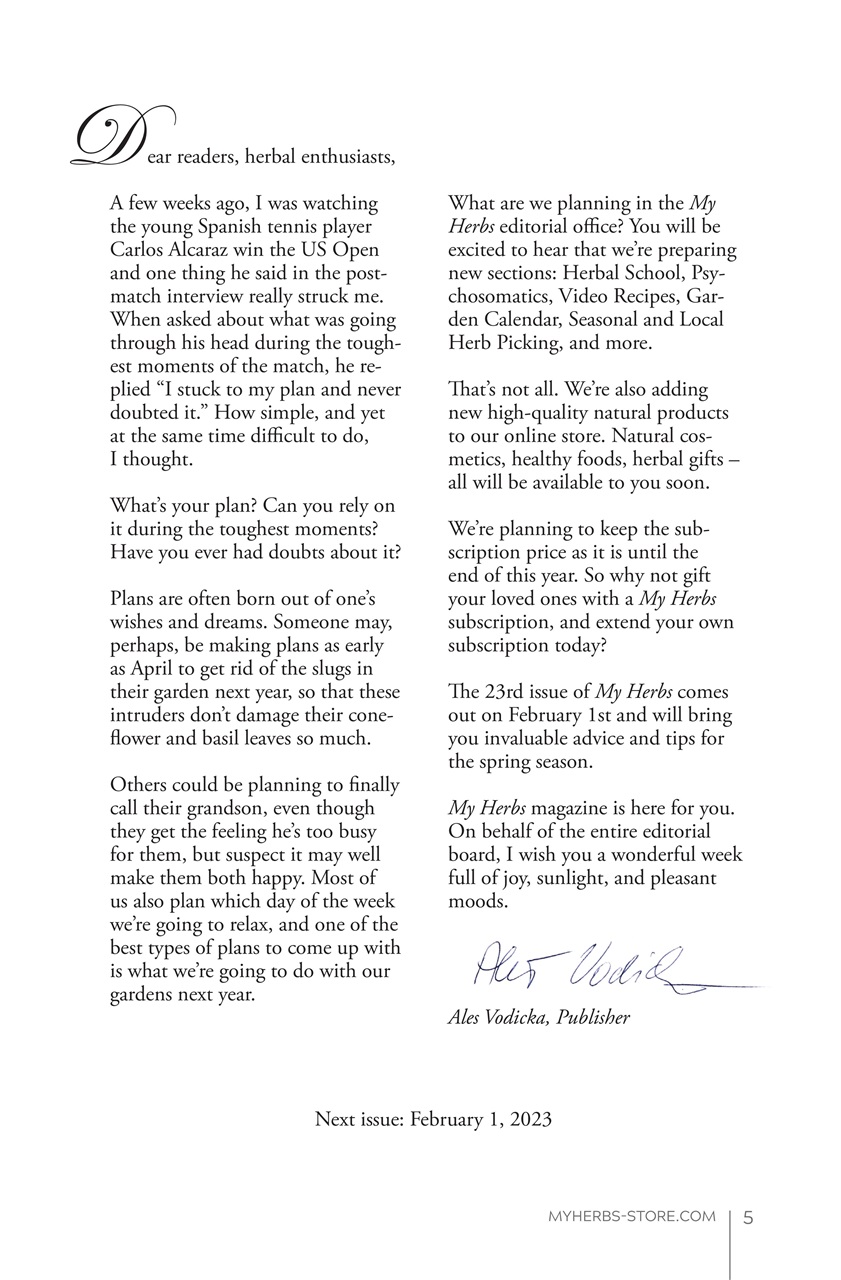 Dear readers, herbal enthusiasts,
A few weeks ago, I was watching
the young Spanish tennis player
Carlos Alcaraz win the US Open
and one thing he said in the post-
match interview really struck me.
When asked about what was going
through his head during the tough-
est moments of the match, he re-
plied “I stuck to my plan and never
doubted it.” How simple, and yet
at the same time difficult to do,
I thought.
What’s your plan? Can you rely on
it during the toughest moments?
Have you ever had doubts about it?
Plans are often born out of one’s
wishes and dreams. Someone may,
perhaps, be making plans as early
as April to get rid of the slugs in
their garden next year, so that these
intruders don’t damage their cone-
flower and basil leaves so much.
Others could be planning to finally
call their grandson, even though
they get the feeling he’s too busy
for them, but suspect it may well
make them both happy. Most of
us also plan which day of the week
we’re going to relax, and one of the
best types of plans to come up with
is what we’re going to do with our
gardens next year.
What are we planning in the My
Herbs editorial office? You will be
excited to hear that we’re preparing
new sections: Herbal School, Psy-
chosomatics, Video Recipes, Gar-
den Calendar, Seasonal and Local
Herb Picking, and more.
That’s not all. We’re also adding
new high-quality natural products
to our online store. Natural cos-
metics, healthy foods, herbal gifts –
all will be available to you soon.
We’re planning to keep the sub-
scription price as it is until the
end of this year. So why not gift
your loved ones with a My Herbs
subscription, and extend your own
subscription today?
The 23rd issue of My Herbs comes
out on February 1st and will bring
you invaluable advice and tips for
the spring season.
My Herbs magazine is here for you.
On behalf of the entire editorial
board, I wish you a wonderful week
full of joy, sunlight, and pleasant
moods.
Aleš Vodička
Ales Vodicka, Publisher
Next issue: February 1, 2023
MYHERBS-STORE.COM 5